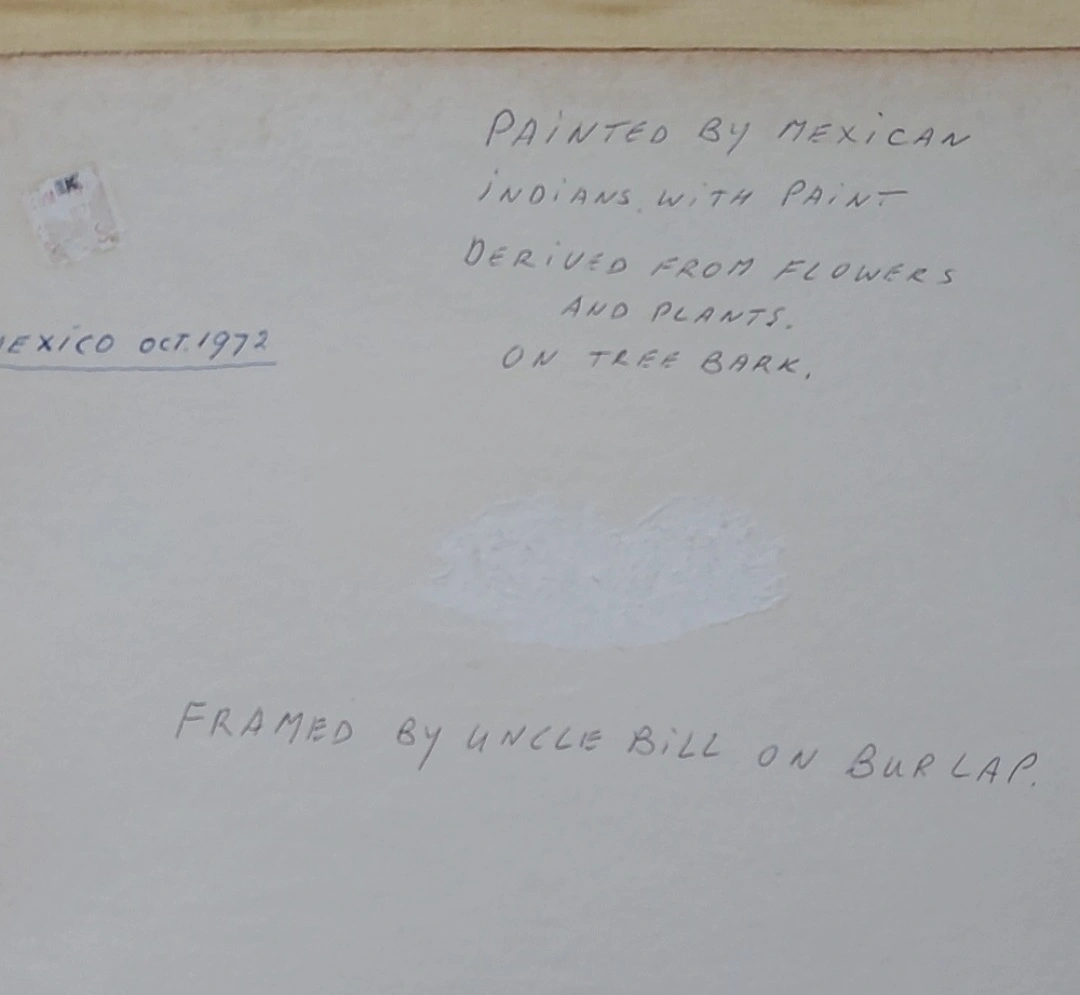 PAINTED BY MEXICAN
INDIANS WITH PAINT
DERIVED FROM FLOWERS
AND PLANTS.
ON TREE BARK.
EXICO OCT. 1972
FRAMED BY UNCLE BILL ON BURLAP.